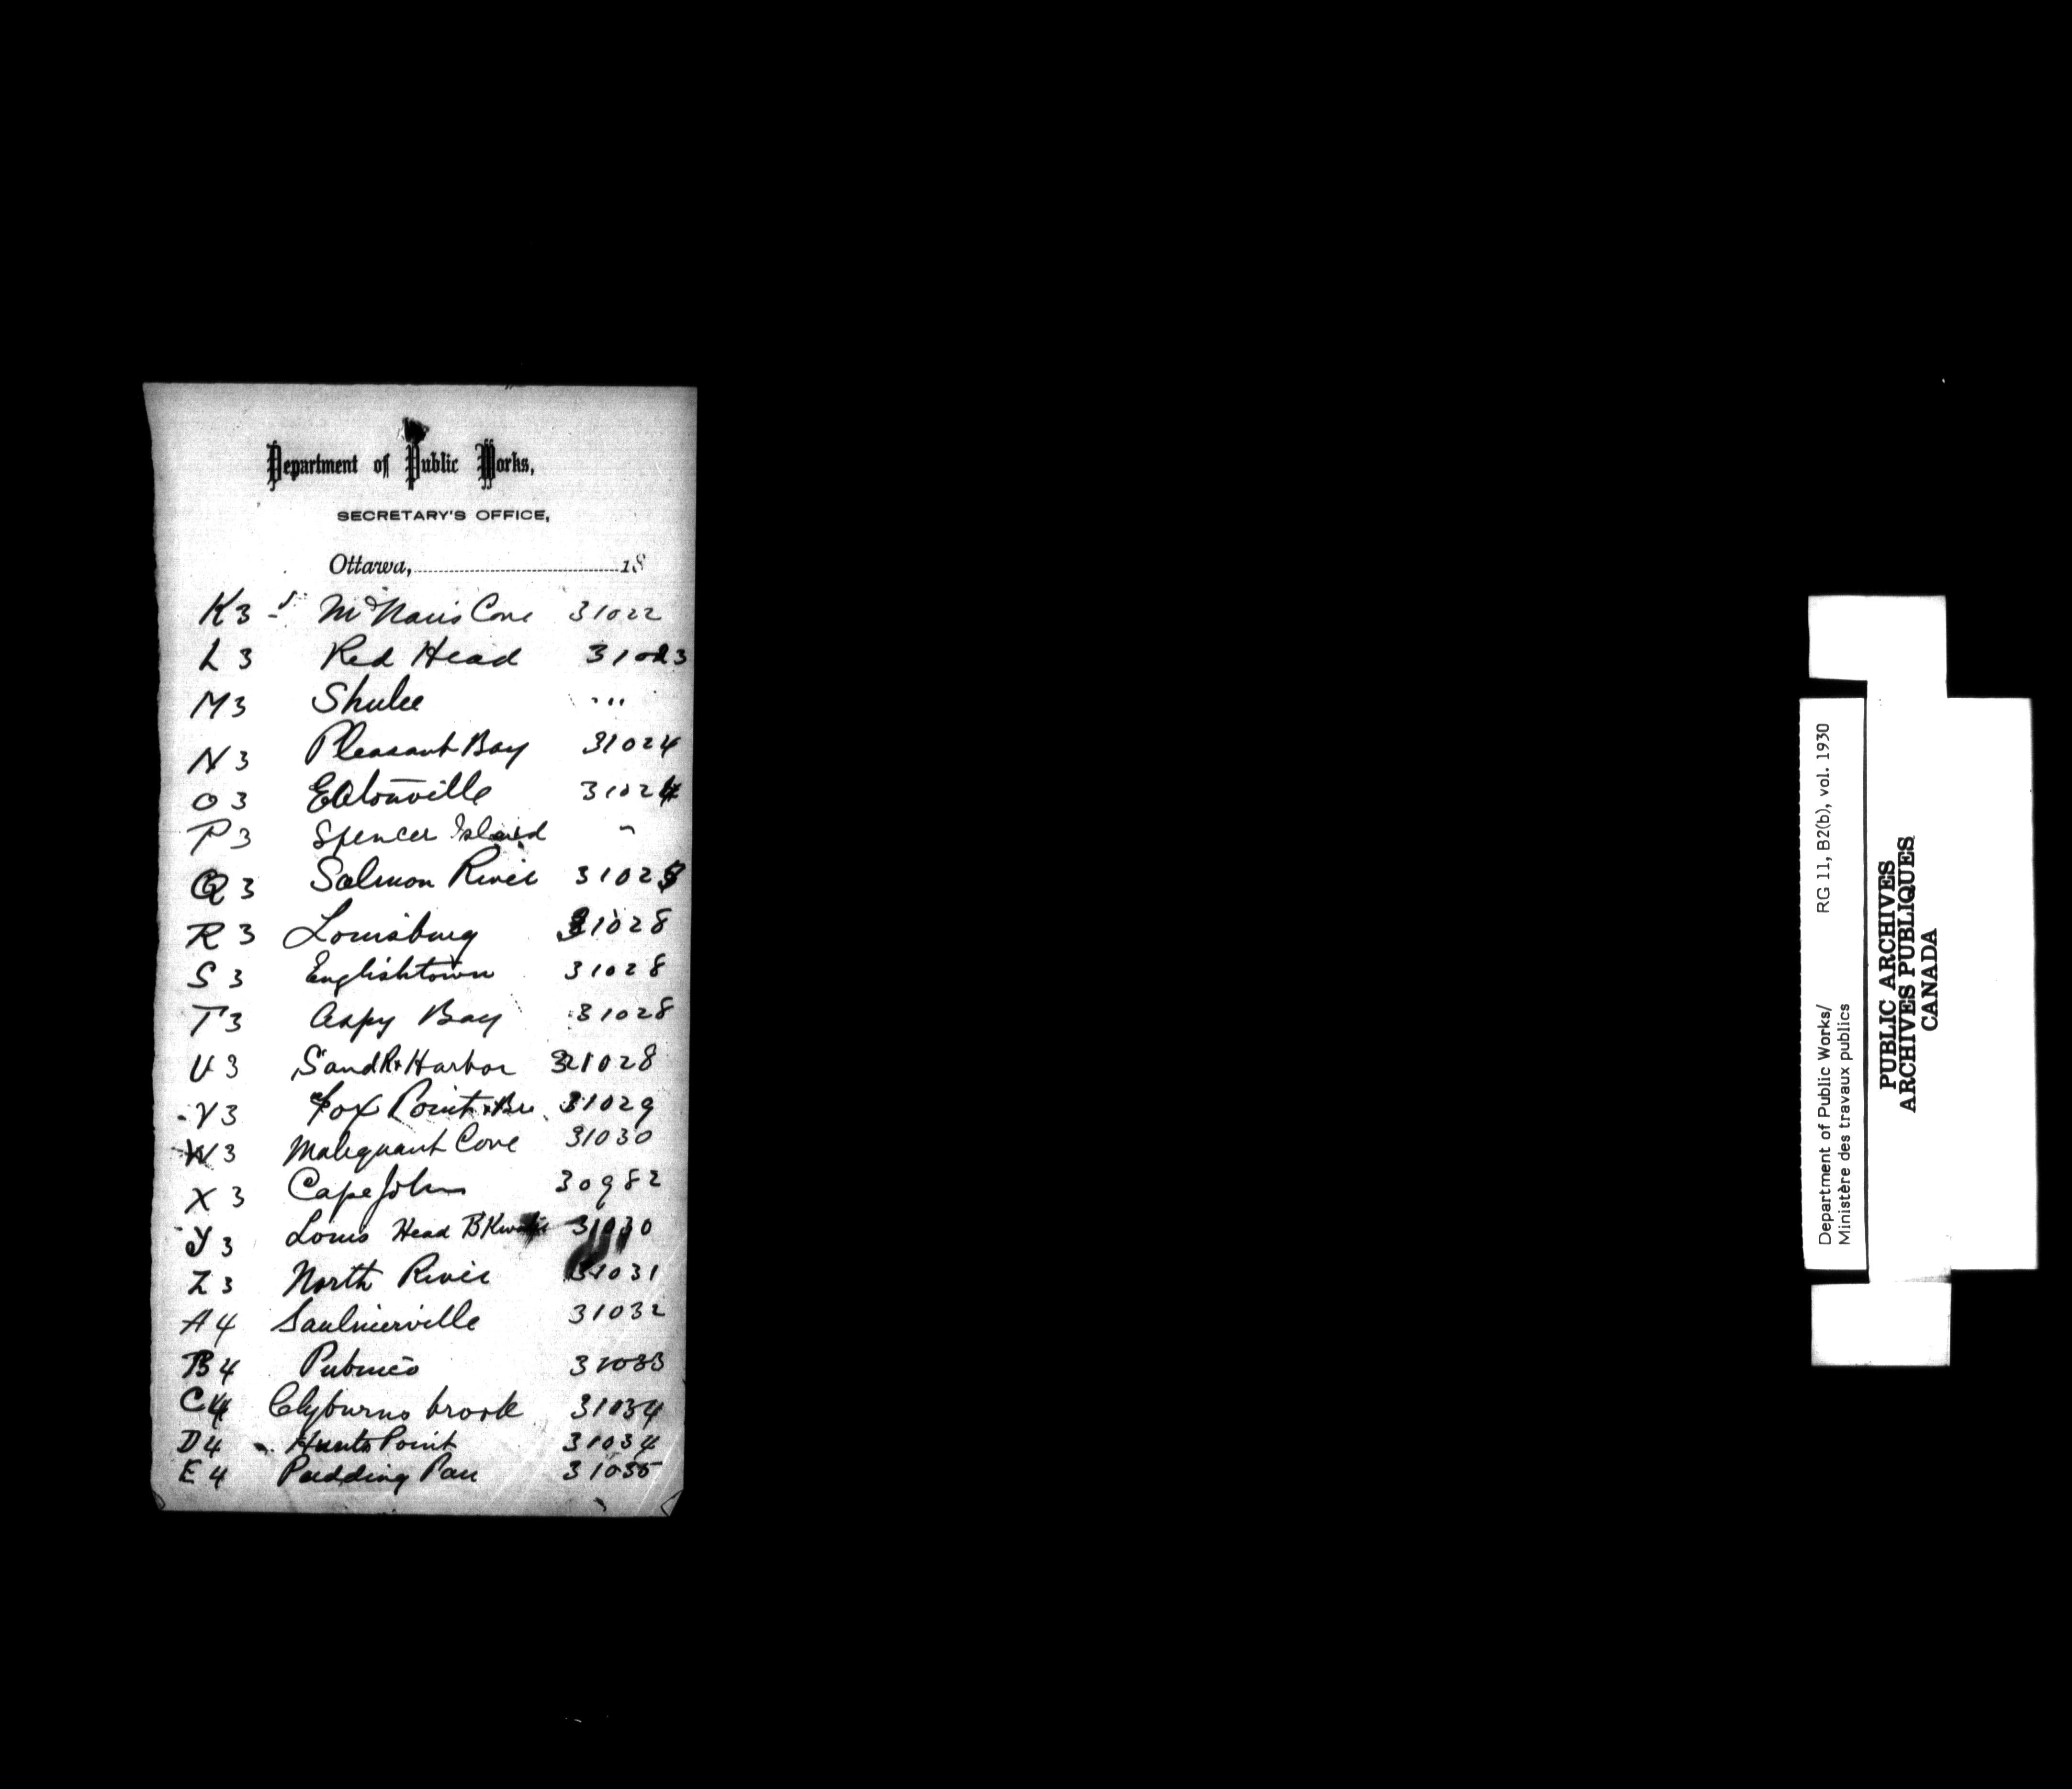 Department of Public Works,
SECRETARY'S OFFICE,
Ottawa, 18
K3 McNairs Cove 31022
L 3 Red Head 31023
M3 Shulee "
N 3 Pleasant Bay 31024
O 3 Eatonville 31024
P 3 Spencer Island "
Q 3 Salmon River 31028
R 3 Louisburg 31028
S 3 Englishtown 31028
T3 Aspy Bay 31028
U 3 Sand R & Harbor 31028
V3 Fox Point 31029
W3 Malignant Cove 31030
X 3 Cape John 30982
Y 3 Louis Head 31030
Z 3 North River 31031
A4 Saulnierville 31032
B4 Pubnico 31033
C4 Clyburns brook 31034
D4 Hunts Point 31034
E4 Pudding Pan 31035
Department of Public Works/ RG 11, B2(b), vol. 1930
Ministère des travaux publics
PUBLIC ARCHIVES
ARCHIVES PUBLIQUES
CANADA